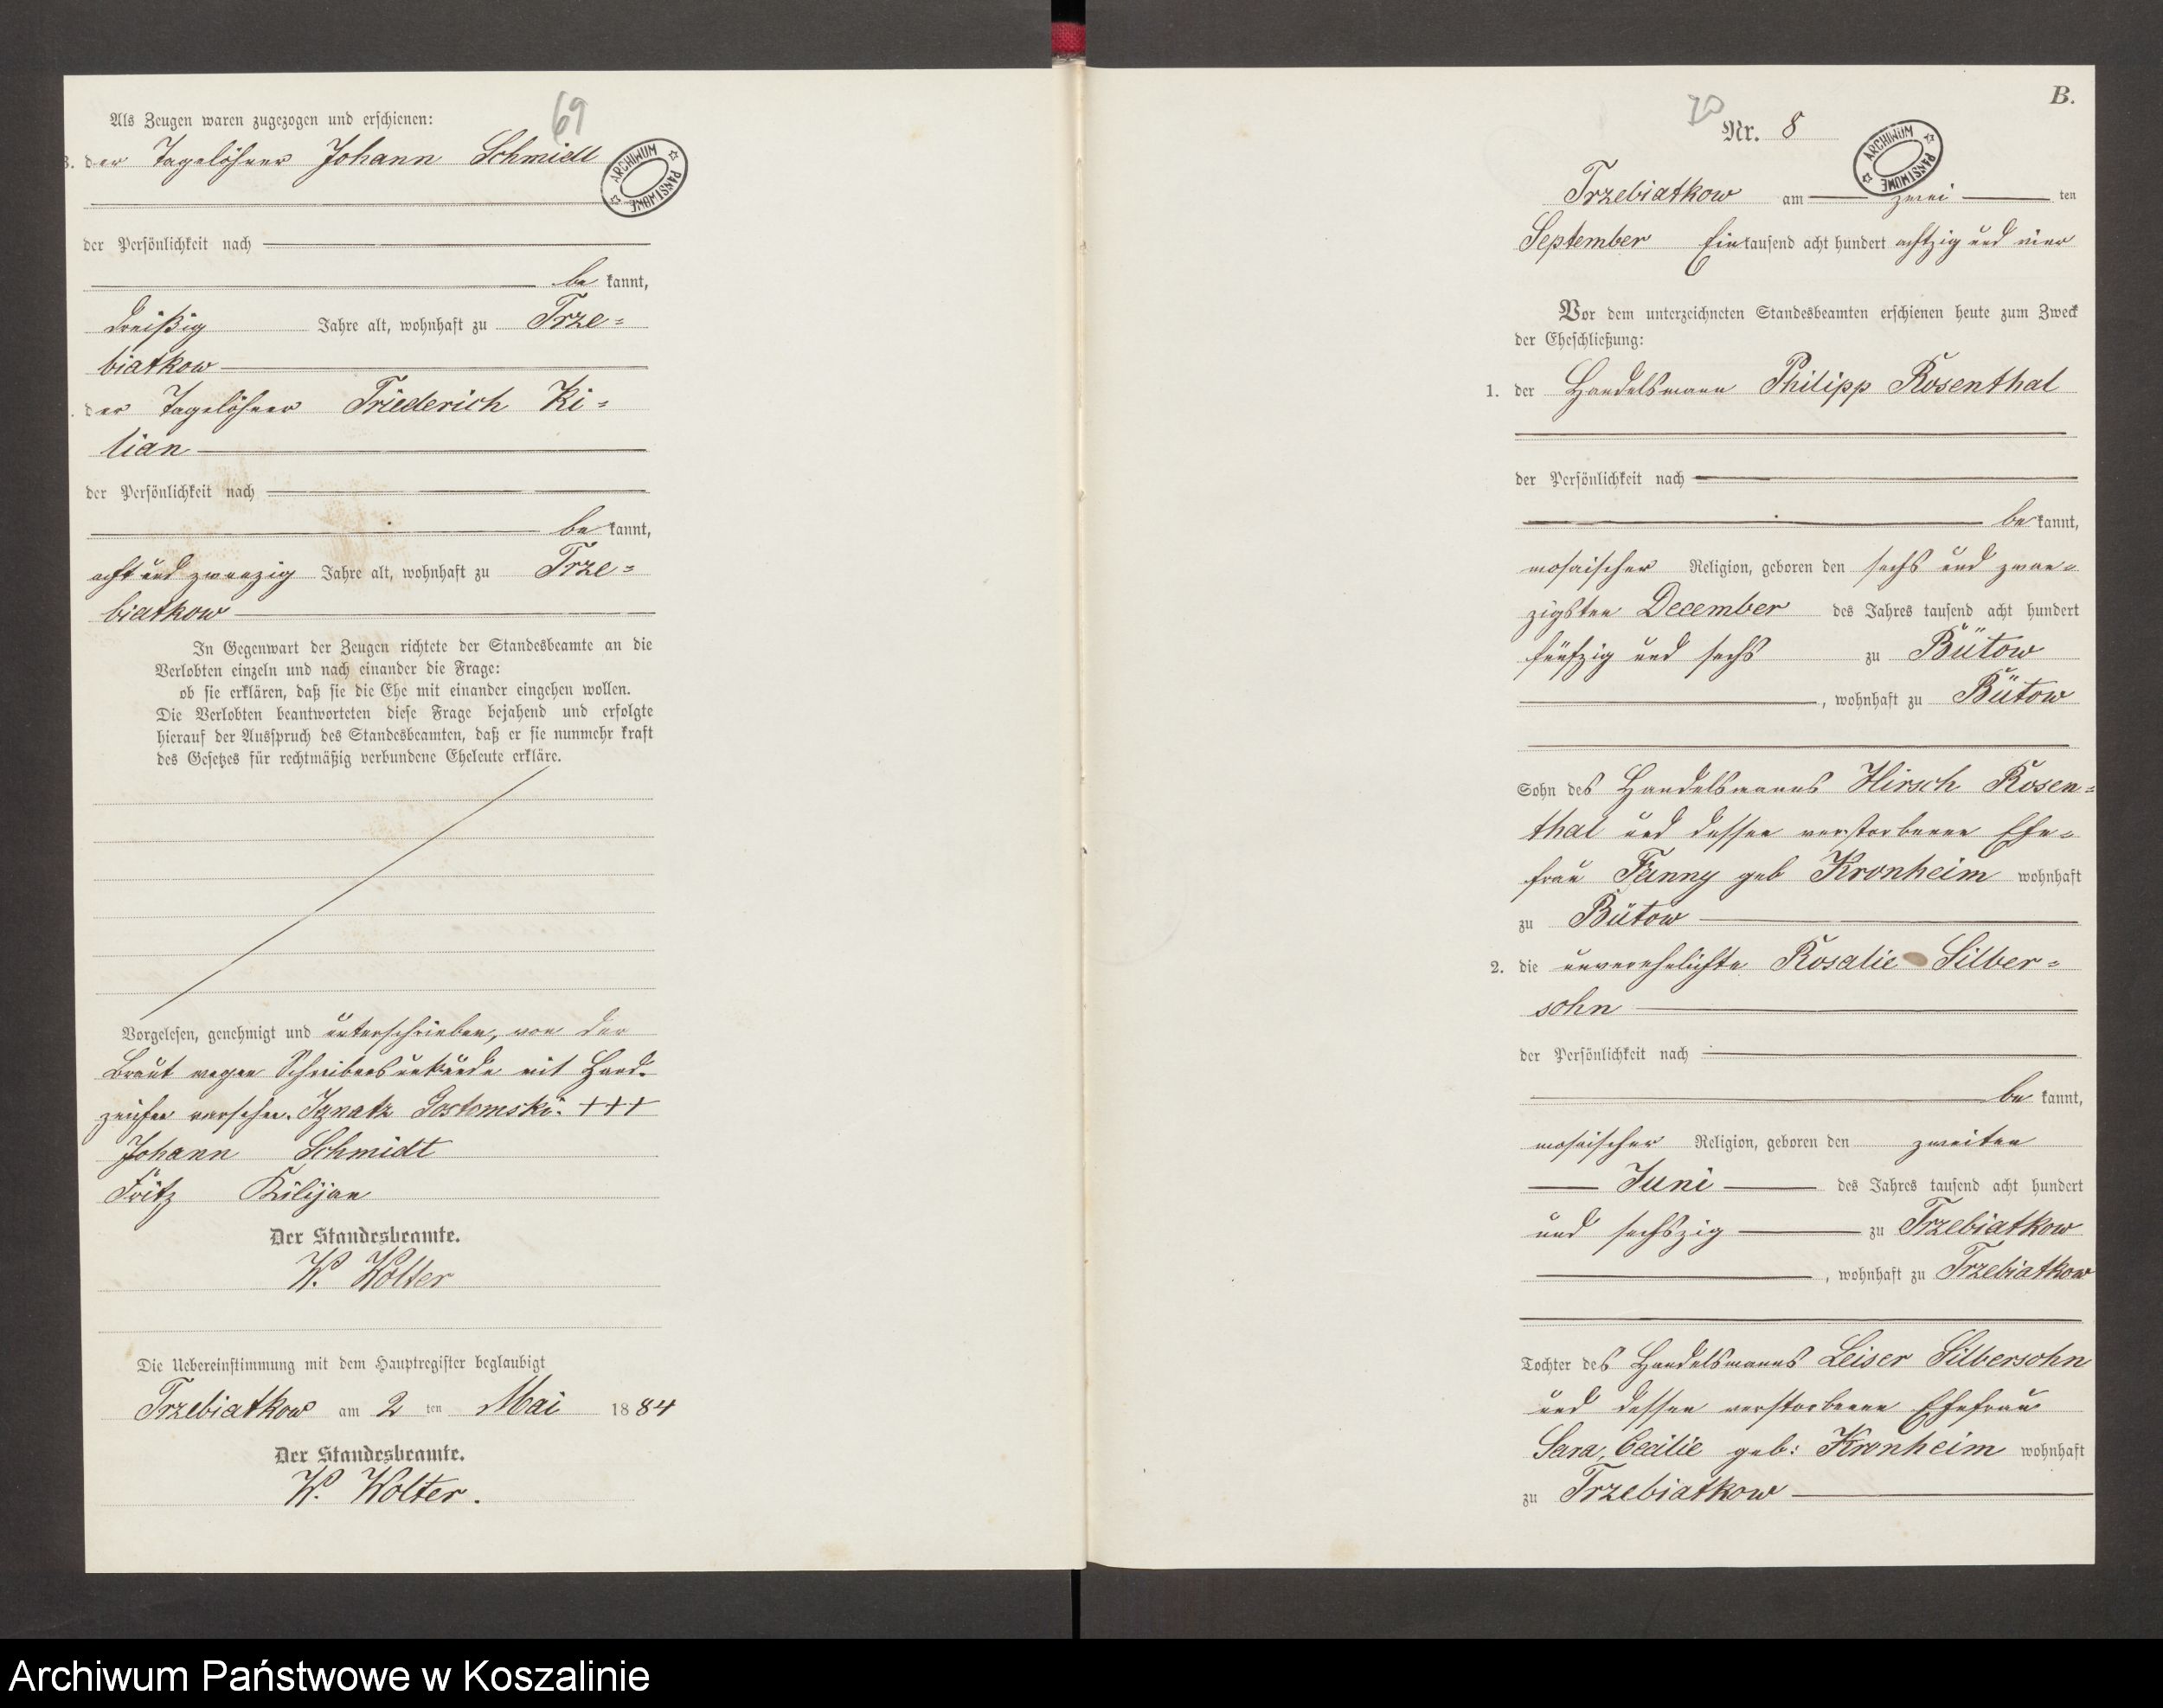 69
Als Zeugen waren zugezogen und erschienen:
3. der Tagelöhner Johann Schmidt
ARCHIWUM PAŃSTWOWE
der Persönlichkeit nach
be kannt,
dreißig Jahre alt, wohnhaft zu Trze=
biatkow
der Tagelöhner Friederich Ki=
lian
der Persönlichkeit nach
be kannt,
acht und zwanzig Jahre alt, wohnhaft zu Trze=
biatkow
In Gegenwart der Zeugen richtete der Standesbeamte an die
Verlobten einzeln und nach einander die Frage:
ob sie erklären, daß sie die Ehe mit einander eingehen wollen.
Die Verlobten beantworteten diese Frage bejahend und erfolgte
hierauf der Ausspruch des Standesbeamten, daß er sie nunmehr kraft
des Gesetzes für rechtmäßig verbundene Eheleute erkläre.
Vorgelesen, genehmigt und unterschrieben, von der
Braut wegen Schreibensunkunde mit Hand=
zeichen versehen. Ignatz Gostomski. +++
Johann Schmidt
Fritz Kilijan
Der Standesbeamte.
W. Wolter
Die Uebereinstimmung mit dem Hauptregister beglaubigt
Trzebiatkow am 2 ten Mai 1884
Der Standesbeamte.
W. Wolter.
B.
70
Nr. 8
ARCHIWUM PAŃSTWOWE
Trzebiatkow am zwei ten
September Ein tausend acht hundert achtzig und vier
Vor dem unterzeichneten Standesbeamten erschienen heute zum Zweck
der Eheschließung:
1. der Handelsmann Philipp Rosenthal
der Persönlichkeit nach
be kannt,
mosaischer Religion, geboren den sechs und zwan=
zigsten December des Jahres tausend acht hundert
fünfzig und sechs zu Bütow
, wohnhaft zu Bütow
Sohn des Handelsmanns Hirsch Rosen=
thal und dessen verstorbenen Ehe=
frau Fanny geb Kronheim wohnhaft
zu Bütow
2. die unverehelichte Rosalie Silber=
sohn
der Persönlichkeit nach
be kannt,
mosaischer Religion, geboren den zweiten
Juni des Jahres tausend acht hundert
und sechszig zu Trzebiatkow
, wohnhaft zu Trzebiatkow
Tochter des Handelsmanns Leiser Silbersohn
und dessen verstorbenen Ehefrau
Sara, Cecilie geb: Kronheim wohnhaft
zu Trzebiatkow
Archiwum Państwowe w Koszalinie